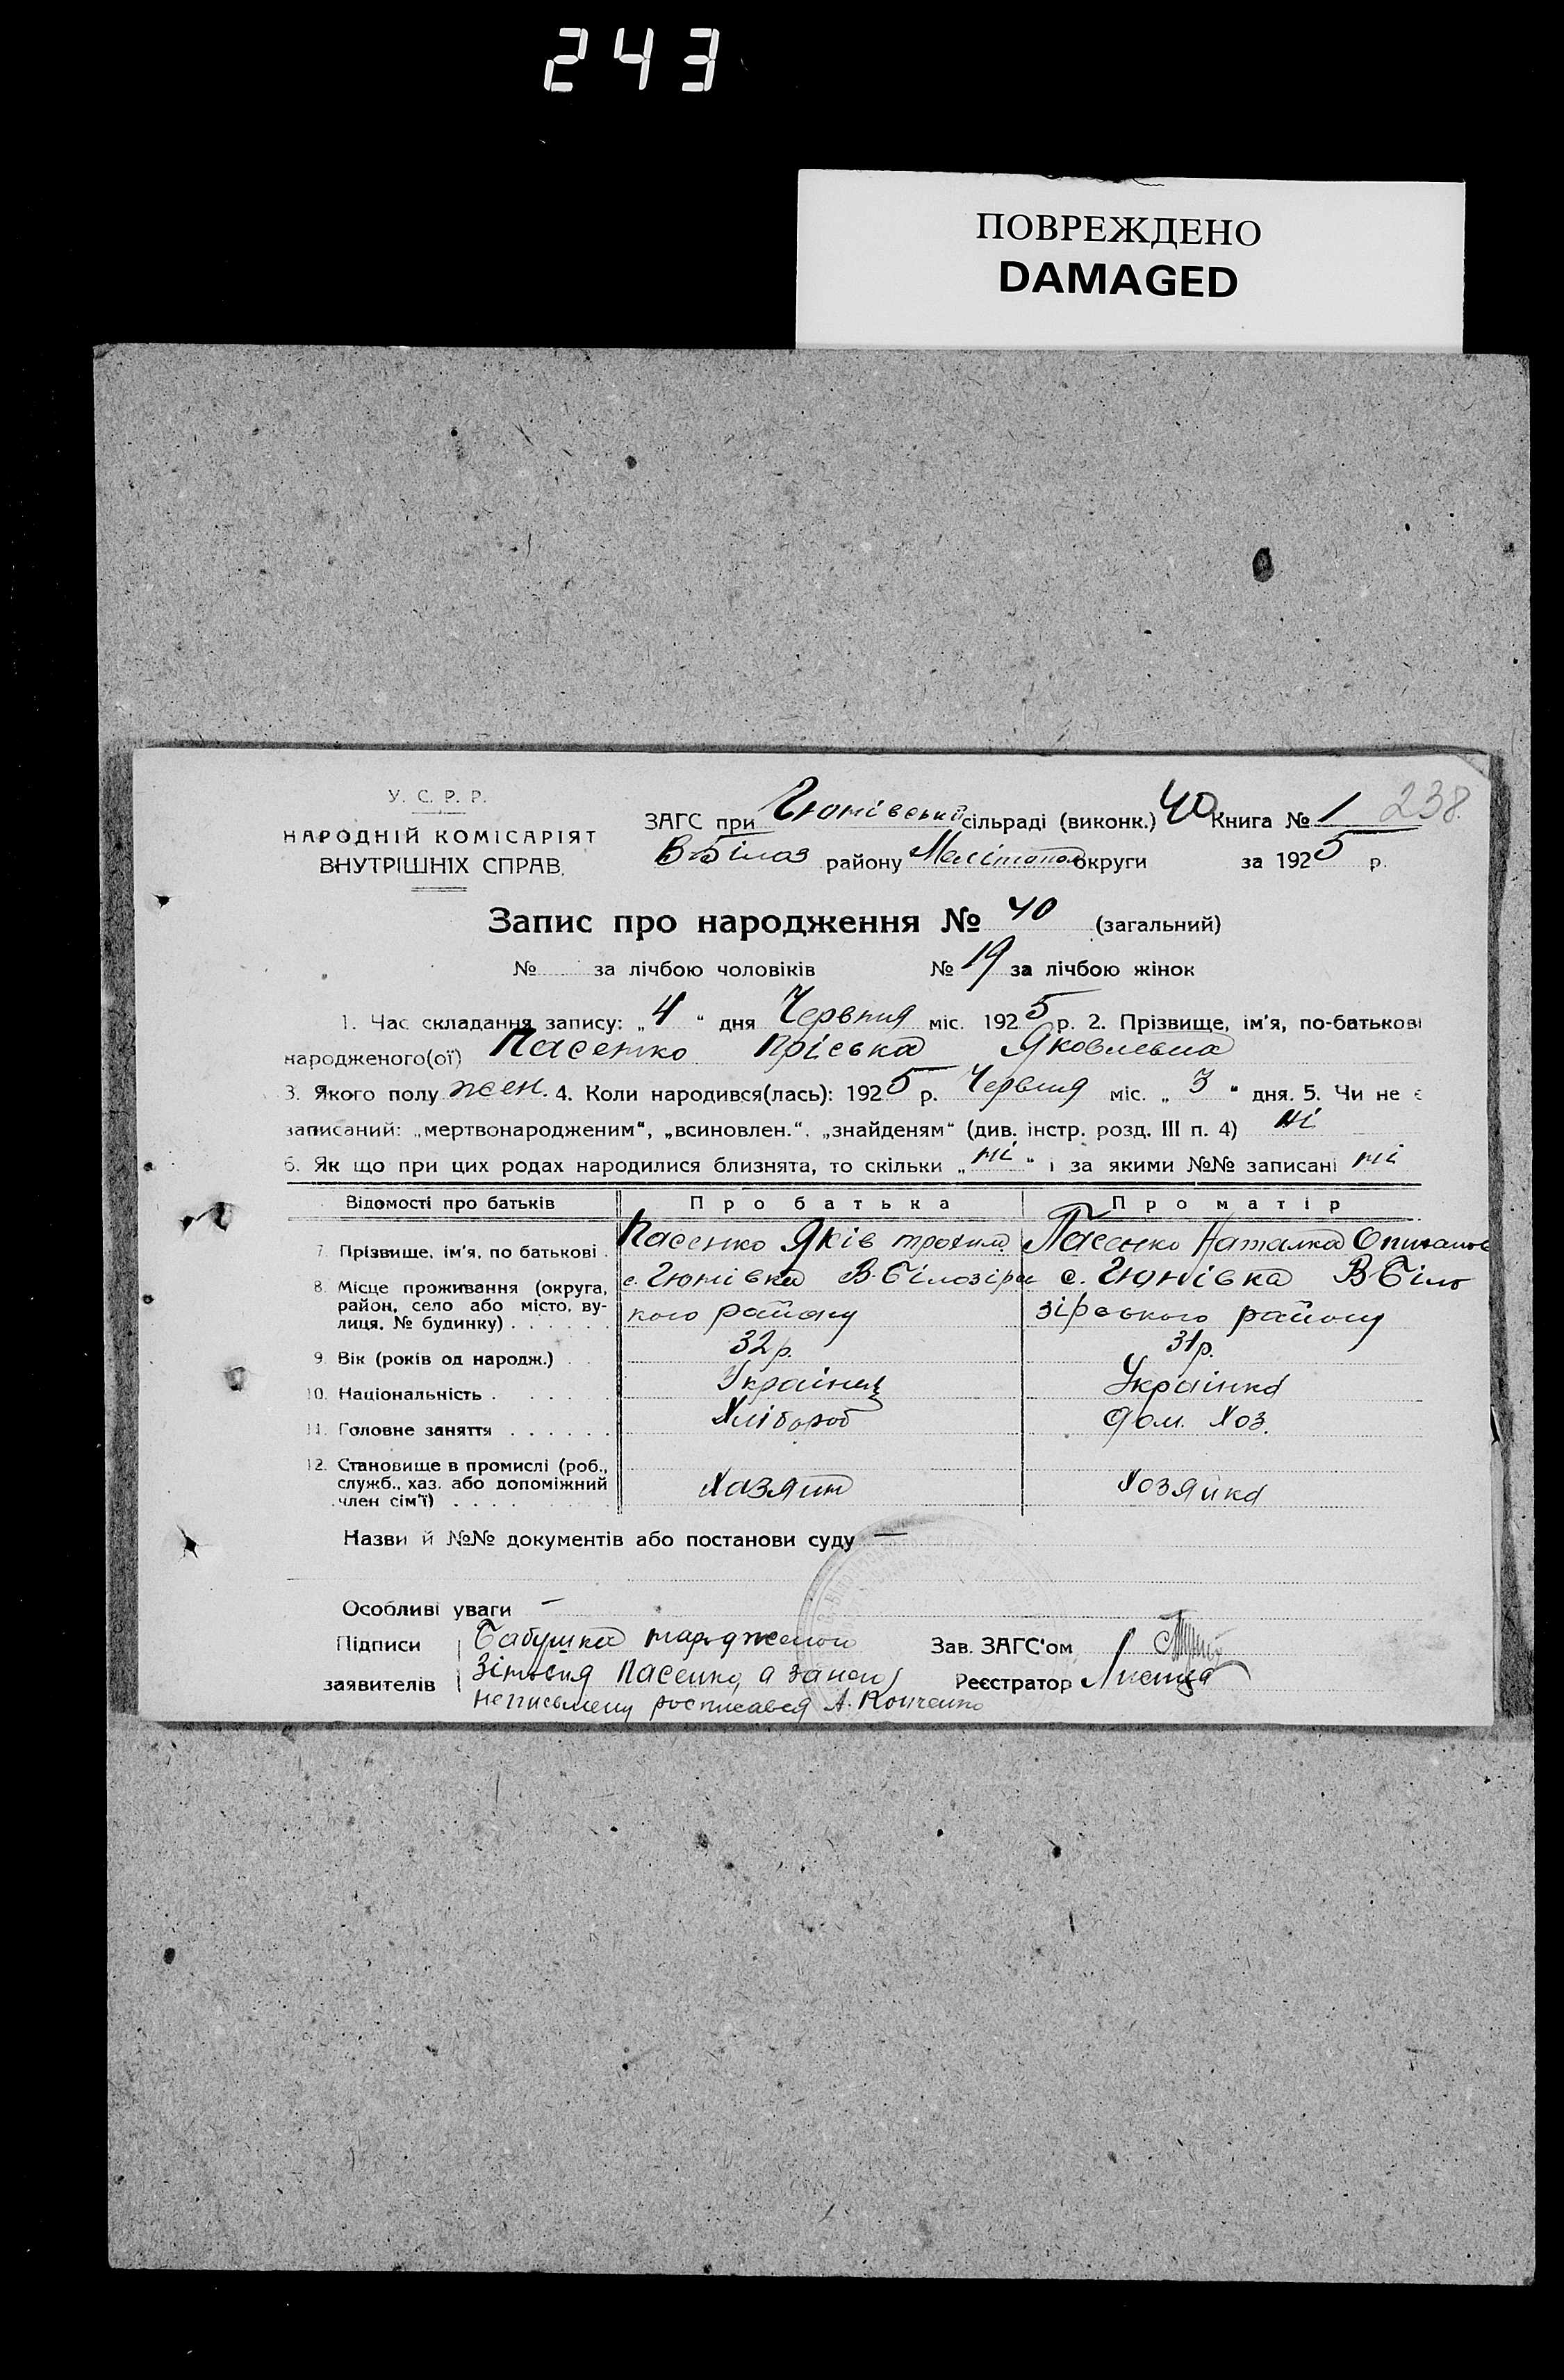 243
ПОВРЕЖДЕНО
DAMAGED
У. С. Р. Р.
НАРОДНІЙ КОМІСАРІЯТ
ВНУТРІШНІХ СПРАВ.
ЗАГС при Гюнівській сільраді (виконк.) 40 Книга № 1 238.
В-Білоз району Мелітопол округи за 1925 р.
Запис про народження № 40 (загальний)
№ за лічбою чоловіків № 19 за лічбою жінок
1. Час складання запису: „4“ дня Червня міс. 1925 р. 2. Прізвище, ім'я, по-батькові
народженого(ої) Пасенко Пріська Яковлевна
3. Якого полу жен. 4. Коли народився(лась): 1925 р. Червня міс. „3“ дня. 5. Чи не є
записаний: „мертвонародженим“, „всиновлен.“, „знайденям“ (див. інстр. розд. III п. 4) ні
6. Як що при цих родах народилися близнята, то скільки „ні“ і за якими №№ записані ні
Відомості про батьків Про батька Про матір
7. Прізвище, ім'я, по батькові . Пасенко Яків трохим. Пасенко Наталка
8. Місце проживання (округа, с. Гюнівка В-Білозірс с. Гюнівка В-Біло
район, село або місто, ву-
лиця, № будинку) . . . . . . кого району зірського району
9. Вік (років од народж.) . . 32 р. 31 р.
10. Національність . . . . . . Українец Українка
11. Головне заняття . . . . . . Хлібороб дом. Хоз.
12. Становище в промислі (роб.,
служб., хаз. або допоміжний Хазяин Хозяйка
член сім'ї) . . . .
Назви й №№ документів або постанови суду —
Особливі уваги —
Підписи Бабушка народженой Зав. ЗАГС'ом
заявителів Пасенко, а за неї Реєстратор
неписьмену росписався А.